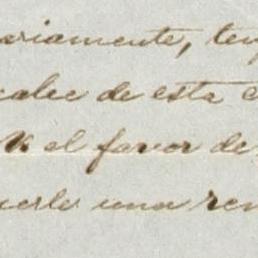 ariamente, ten
calee de esta c
el favor de
una ren